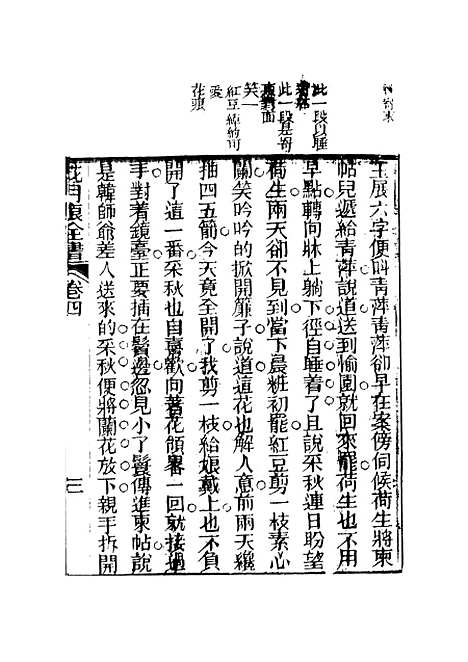 此一段以睡
此一段是對面
笑一
紅豆綽約可
愛
花頭
玉展六字便叫青萍青萍卻早在案傍伺候荷生將柬
帖兒遞給青萍說道送到愉園就回來罷荷生也不用
早點轉向牀上躺下徑自睡着了且說采秋連日盼望
荷生兩天卻不見到當下晨粧初罷紅豆剪一枝素心
蘭笑吟吟的掀開簾子說道這花也解人意前兩天纔
抽四五箭今天竟全開了我剪一枝給娘戴上也不負
開了這一番采秋也自喜歡向著花領畧一回就接過
手對着鏡臺正要插在鬢邊忽見小丫鬟傳進柬帖說
是韓師爺差人送來的采秋便將蘭花放下親手拆開
花月痕全書
卷四
三